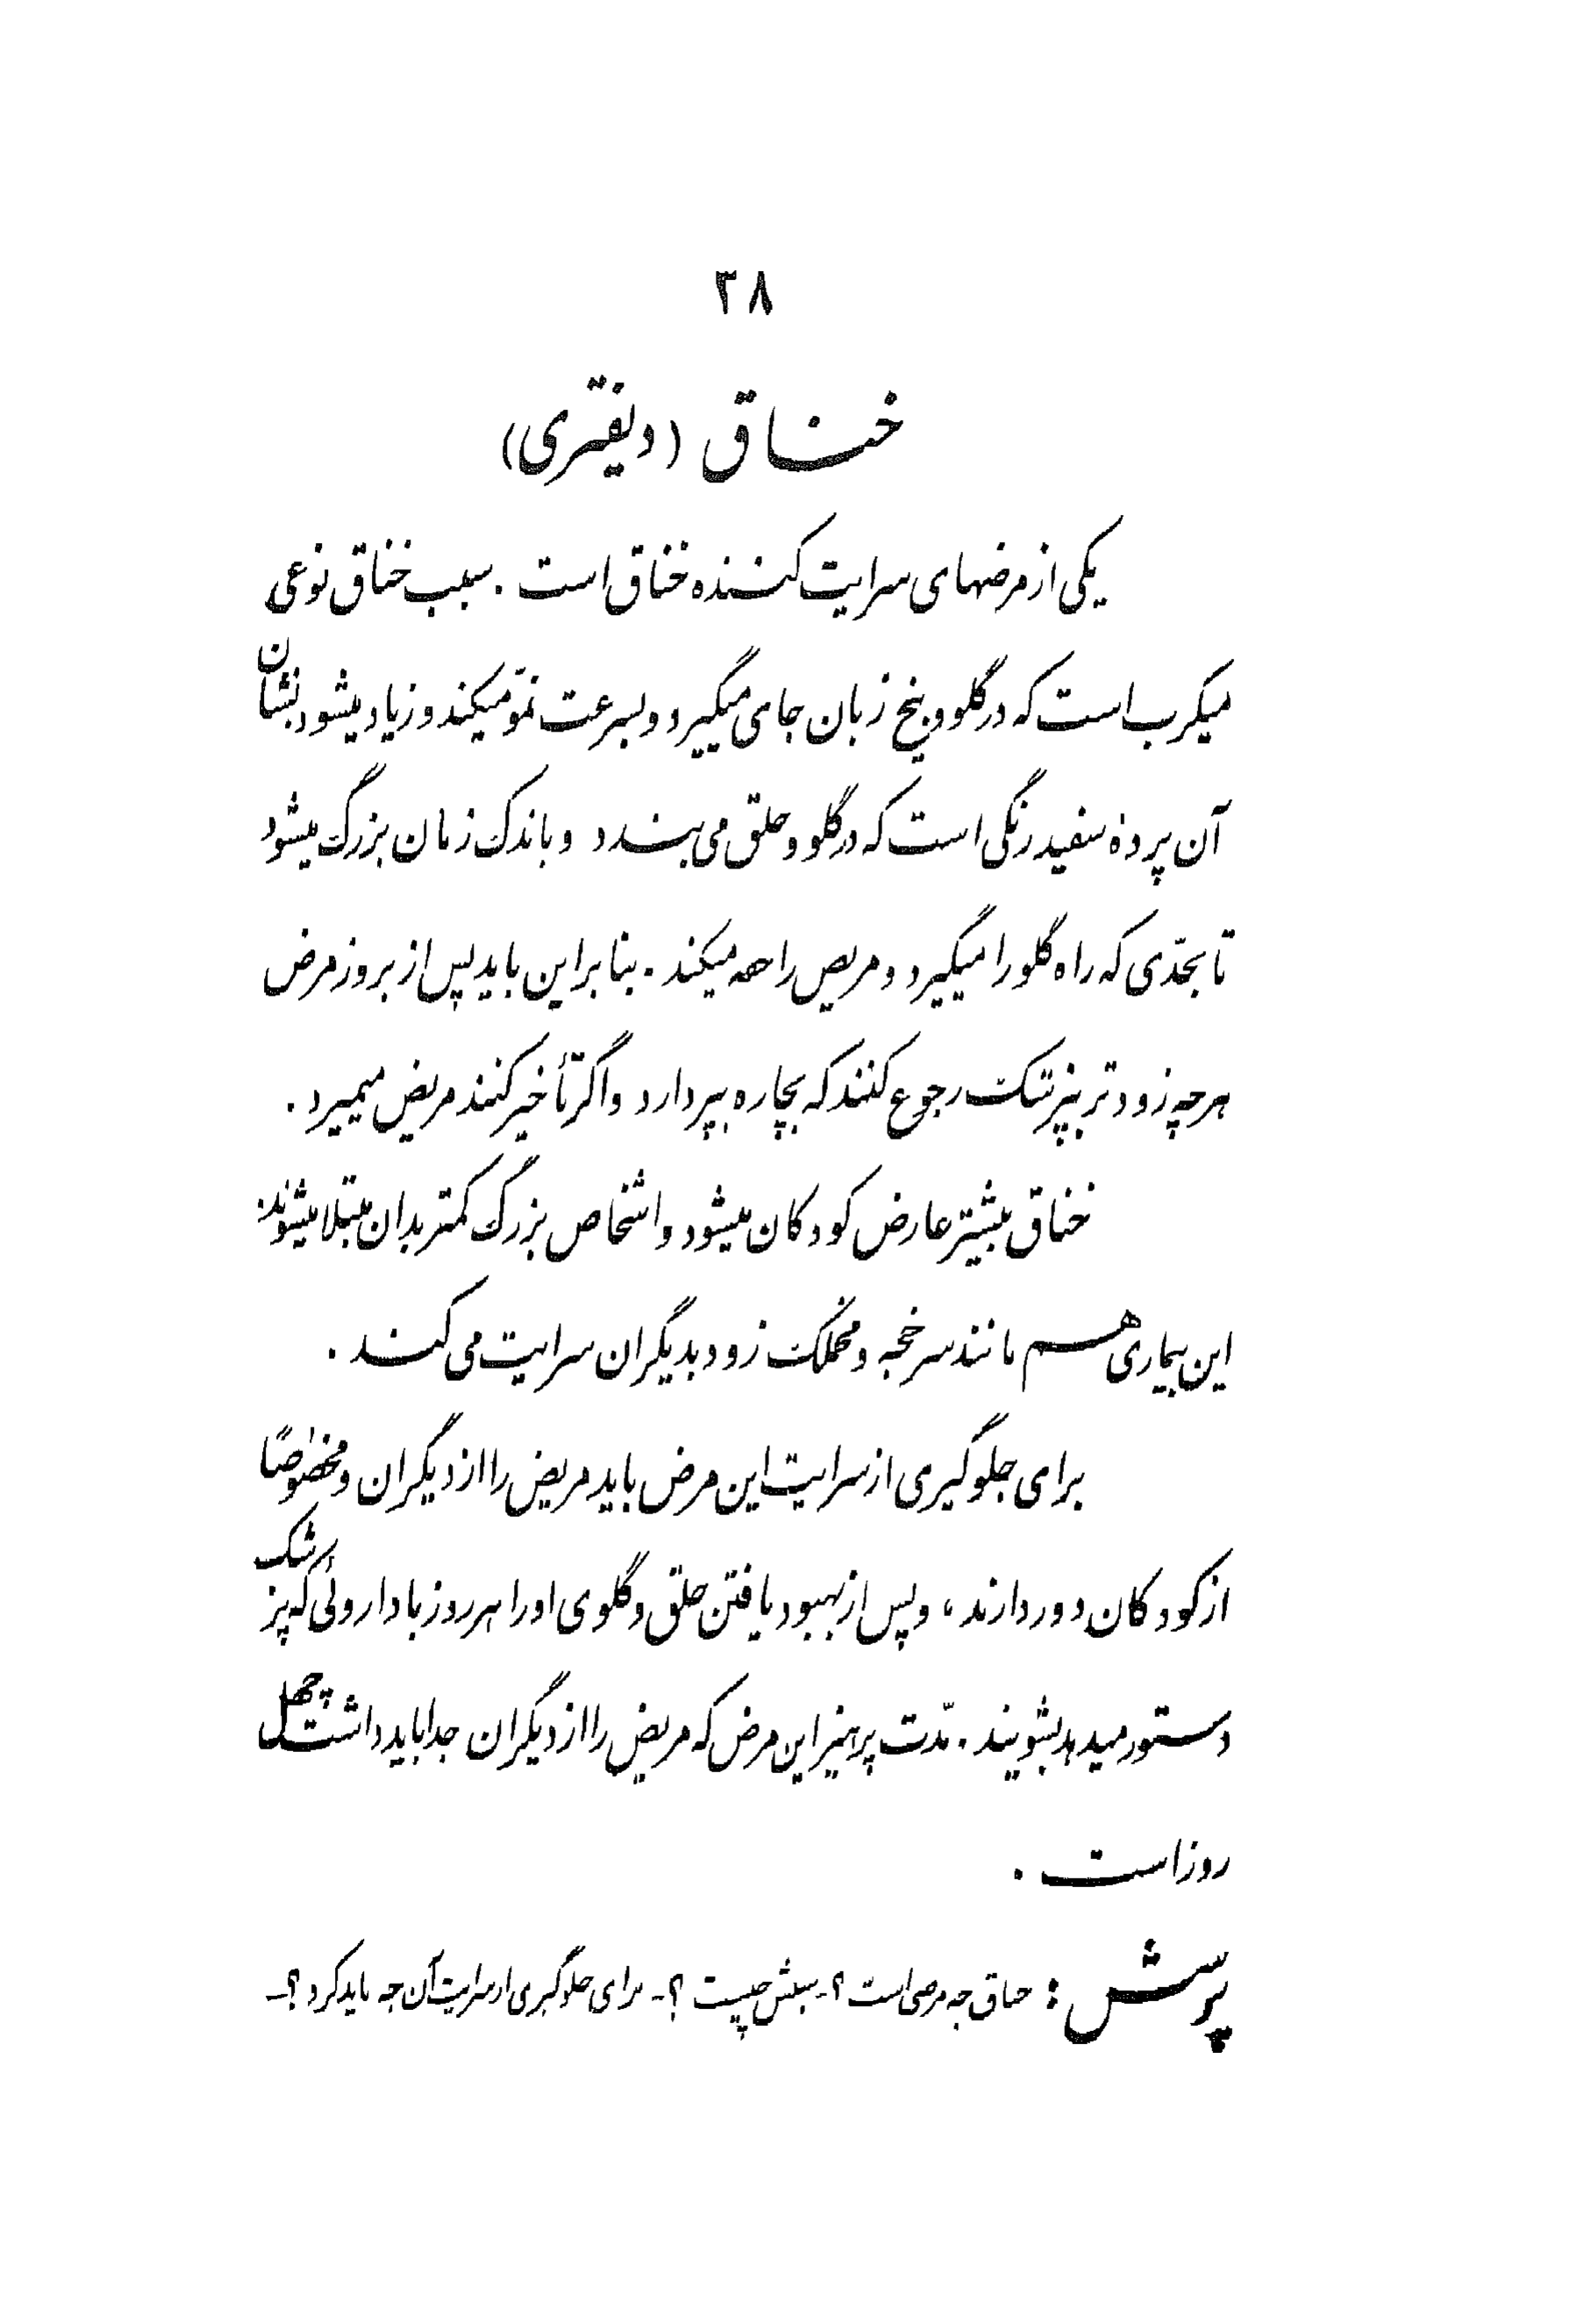 ۲۸
خناق (دیفتری)
یکی از مرضهای سرایت کننده خناق است . سبب خناق نوعی
میکرب است که در گلو و بیخ زبان جای میگیرد و بسرعت نموّ میکند و زیاد میشود نشان
آن پردهٔ سفید رنگی است که در گلو و حلق می‌بندد و باندک زمان بزرگ میشود
تا بحدّی که راه گلو را میگیرد و مریض را خفه میکند . بنابراین باید پس از بروز مرض
هرچه زودتر بپزشک رجوع کنند که بچاره بپردازد و اگر تأخیر کنند مریض میمیرد .
خناق بیشتر عارض کودکان میشود و اشخاص بزرگ کمتر بدان مبتلا میشوند .
این بیماری هم مانند سرخجه و مخملک زود بدیگران سرایت می‌کند .
برای جلوگیری از سرایت این مرض باید مریض را از دیگران و مخصوصاً
از کودکان دور دارند ، و پس از بهبود یافتن حلق و گلوی او را هر روز با داروئی که پزشک
دستور میدهد بشویند . مدّت پرهیز این مرض که مریض را از دیگران جدا باید داشت چهل
روز است .
پرسش : خناق چه مرضی است ؟ - سببش چیست ؟ - برای جلوگیری از سرایت آن چه باید کرد ؟ -